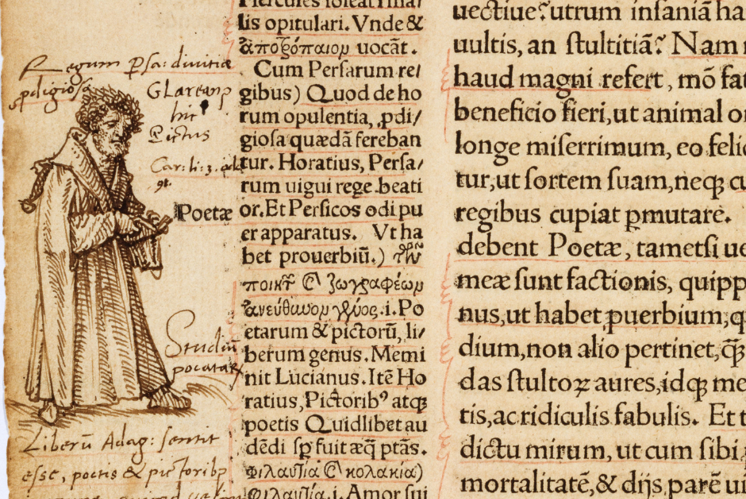 Regum Psa: divitiæ
pdigiosa
Glareanꝰ
hic
Pictus
Car: li: 3.
Studiū
Liberū Adag: sentit
esse, poetis & pictoribꝰ
lis opitulari. Vnde &
ἀποτρόπαιου uocāt.
Cum Persarum re/
gibus) Quod de ho
rum opulentia, ꝓdi/
giosa quædā fereban
tur. Horatius, Persa/
rum uigui rege beati
Poetæ or. Et Persicos odi pu
er apparatus. Vt ha
bet prouerbiū.) τῶν
ποιητῶν
ἀνεύθυνον γένος .i. Po
etarum & pictorū, li/
berum genus. Memi
nit Lucianus. Itē Ho
ratius, Pictoribꝰ atq;
poetis Quidlibet au
dēdi sp̄ fuit æq̄ ptās.
Φιλαυτία & κολακία)
Φιλαυτία .i. Amor sui
uectiue? utrum insaniā ha
uultis, an stultitiā? Nam
haud magni refert, mō
beneficio fieri, ut animal
longe miserrimum, eo
tur, ut sortem suam, neq;
regibus cupiat ꝑmutare.
debent Poetæ, tametsi
meæ sunt factionis, quipp
nus, ut habet ꝓuerbium,
dium, non alio pertinet, q̄
das stultoꝝ aures, idq; me
tis, ac ridiculis fabulis. Et
dictu mirum, ut cum sibi
mortalitatē, & dijs parē